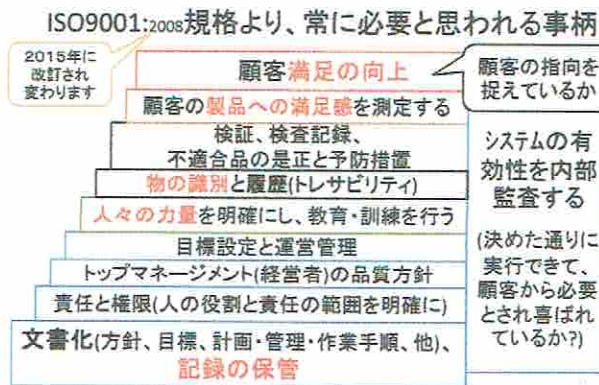 ISO9001:2008規格より、常に必要と思われる事柄
2015年に
改訂され
変わります
顧客満足の向上
顧客の指向を
捉えているか
顧客の製品への満足感を測定する
検証、検査記録、
不適合品の是正と予防措置
物の識別と履歴(トレサビリティ)
人々の力量を明確にし、教育・訓練を行う
目標設定と運営管理
トップマネージメント(経営者)の品質方針
責任と権限(人の役割と責任の範囲を明確に)
文書化(方針、目標、計画・管理・作業手順、他)、
記録の保管
システムの有
効性を内部
監査する
(決めた通りに
実行できて、
顧客から必要
とされ喜ばれ
ているか?)